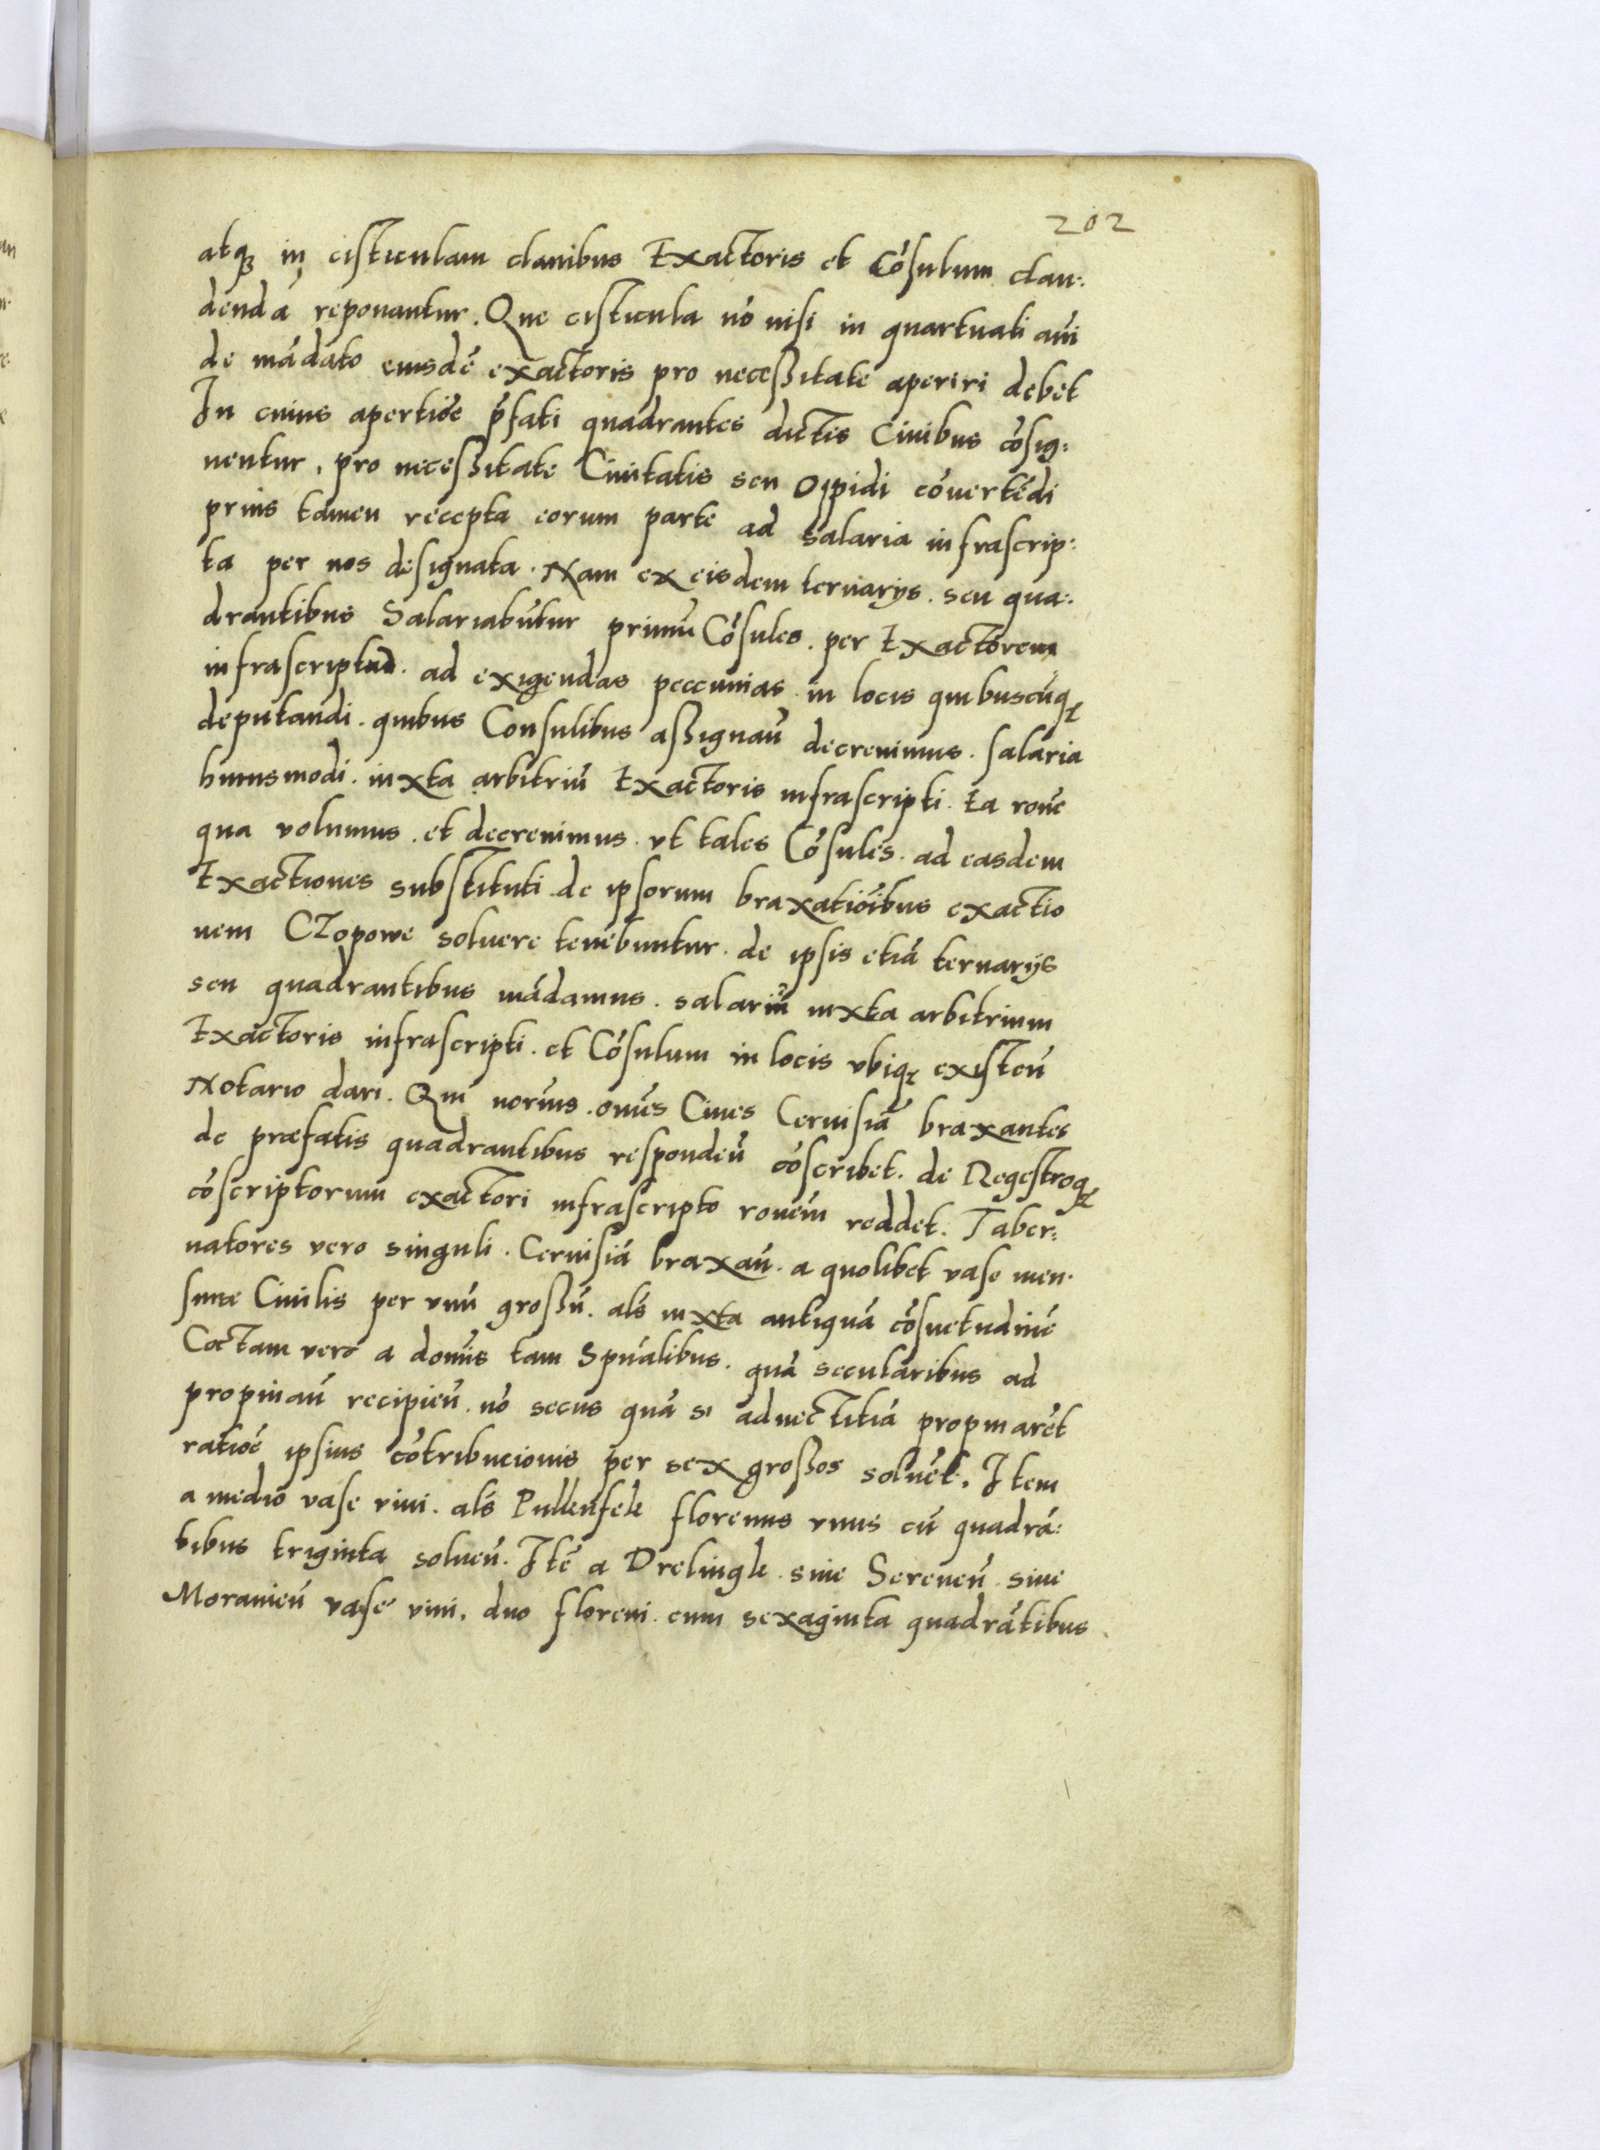 202
atqꝫ in cisticulam clauibus Exactoris et Cōsulum clau:
dendā reponantur. Que cisticula nō nisi in quartuali an̄i
de mādato eiusdē exactoris pro necessitate aperiri debet
In cuius apertiōe p̄fati quadrantes dictis Ciuibus cōsig:
nentur, pro necessitate Ciuitatis seu oppidi cōuertēdi
prius tamen recepta eorum parte ad salaria infrascrip:
ta per nos designata. Nam ex eisdem ternarijs. seu qua:
drantibus Salariabūtur primū Cōsules. per Exactorem
infrascriptū. ad exigendas peccunias in locis quibuscūqꝫ
deputandi. quibus Consulibus assignan̄ decreuimus. salaria
huiusmodi. iuxta arbitriū Exactoris infrascripti. Ea ron̄e
qua volumus. et decreuimus. vt tales Cōsules. ad easdem
Exactiones substituti de ipsorum braxatiōibus exactio
nem Czopowe soluere tenebuntur. de ipsis etiā ternarijs
seu quadrantibus mādamus. salariū iuxta arbitrium
Exactoris infrascripti. et Cōsulum in locis vbiqꝫ existen̄
Notario dari. Qui norīus. om̄es Ciues Ceruisiā braxantes
de præfatis quadrantibus responden̄ cōscribet. de Regestroqꝫ
cōscriptorum exactori infrascripto ronem̄ reddet. Taber:
natores vero singuli. Ceruisiā braxan̄. a quolibet vase men.
suræ Ciuilis per vnū grossū. al̄s iuxta antiquā cōsuetudinē
Coctam vero a domīs tam Spūalibus. quā secularibus ad
propinan̄ recipien̄. nō secus quā si aduectitiā propinarēt
ratiōe ipsius cōtribucionis per sex grossos soluēt. Item
a medio vase vini. al̄s Pullenfele florenus vnus cū quadrā:
tibus triginta soluen̄. Itē a Drelingle siue Sereuen̄ siue
Morauien̄ vase vini. duo floreni. cum sexaginta quadrātibus